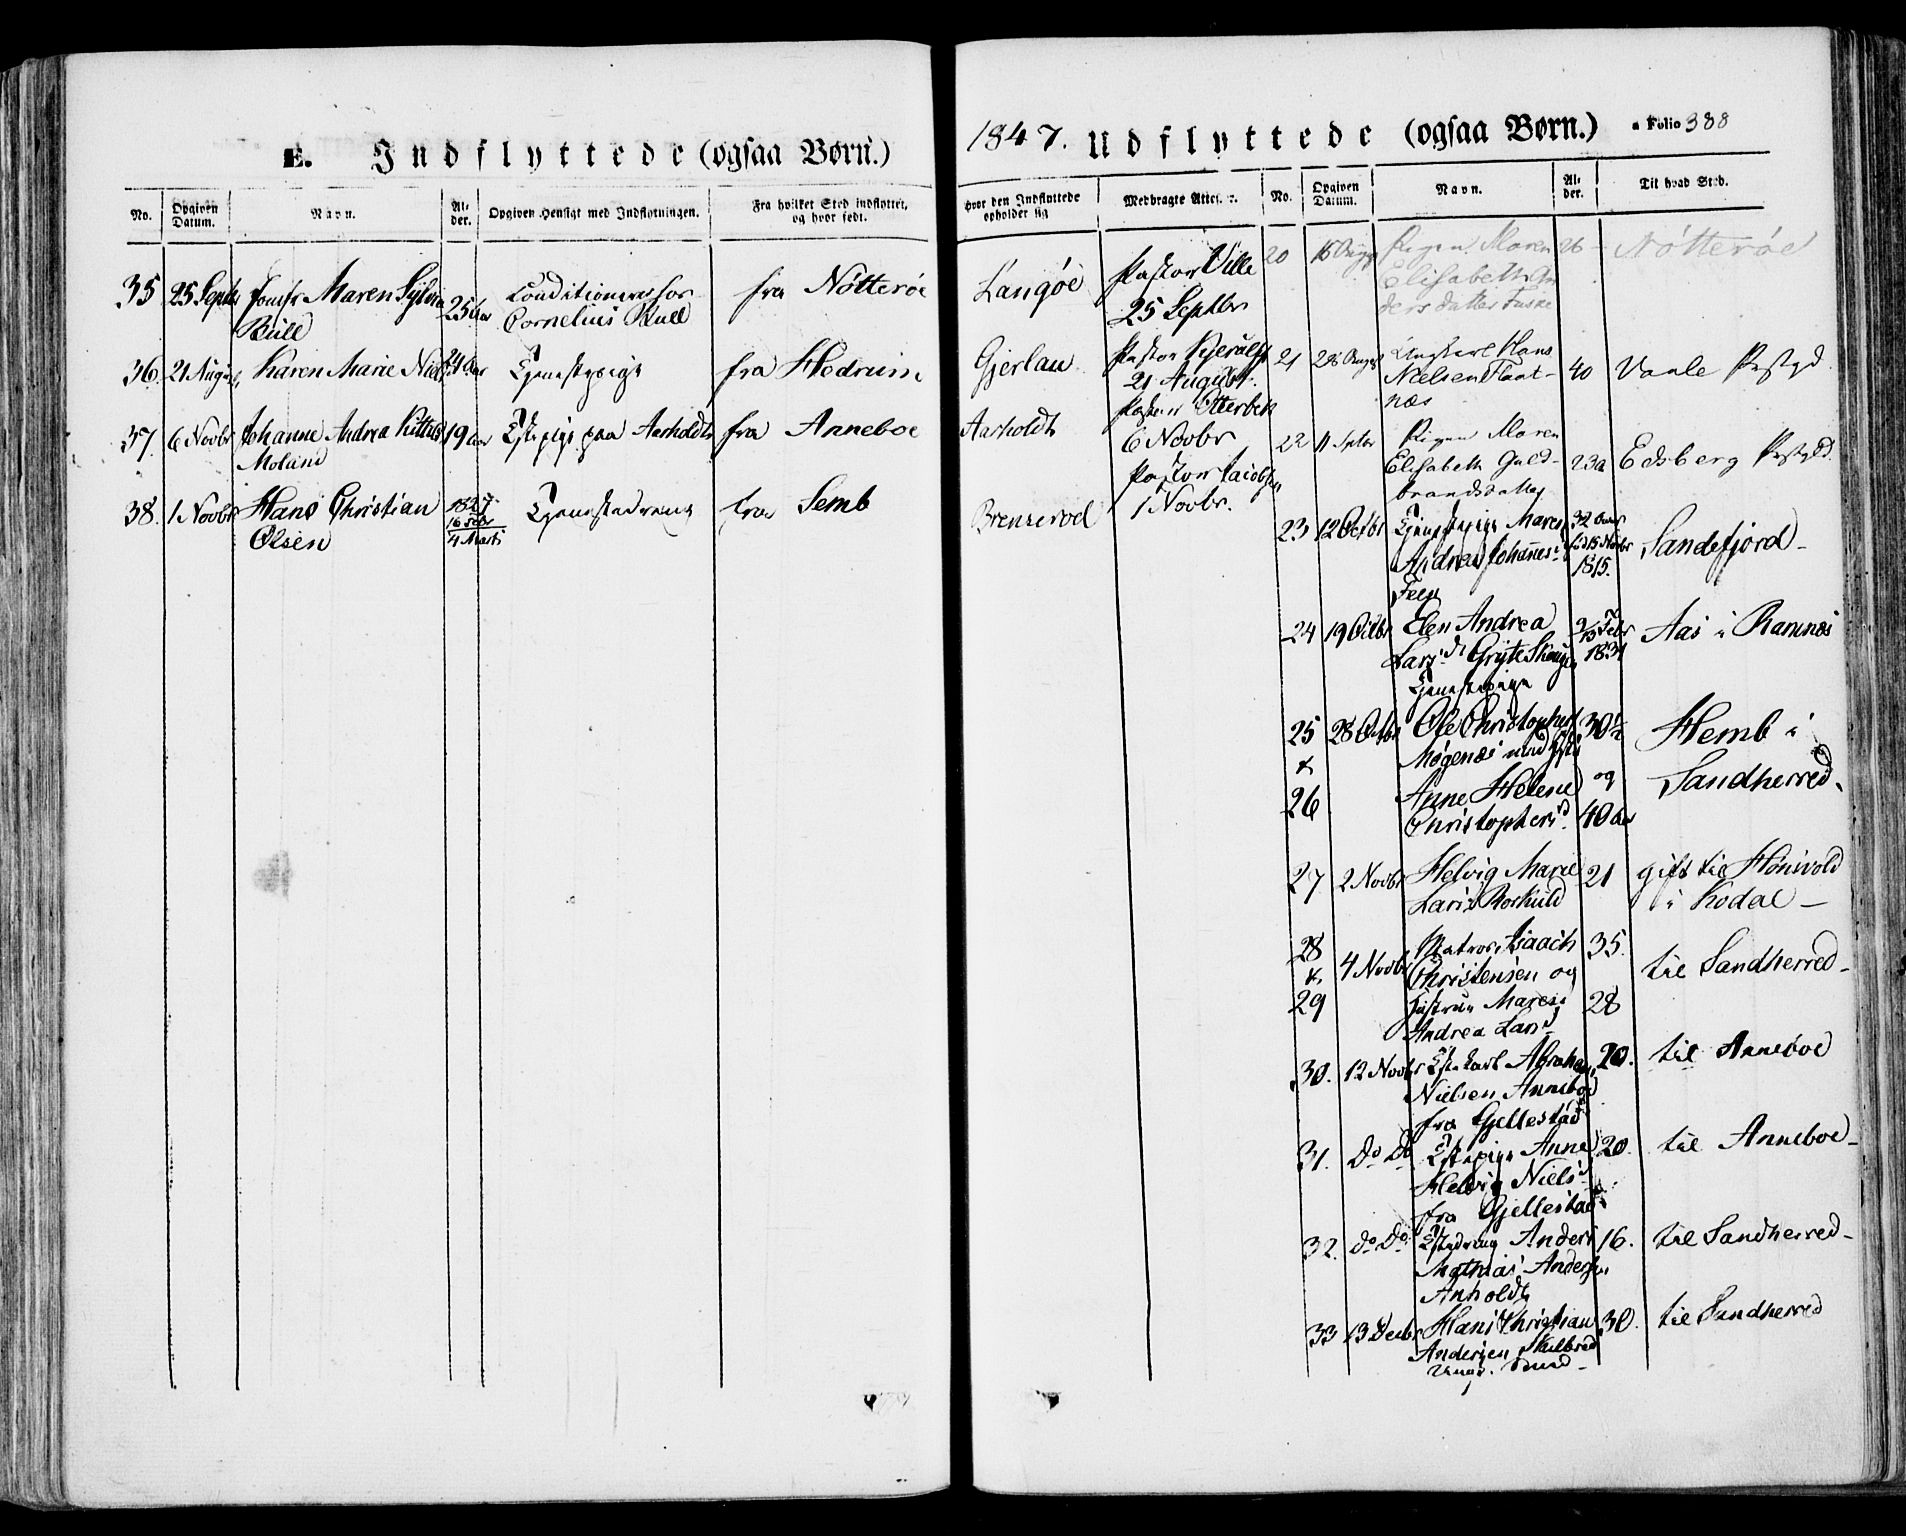 E. Indflyttede (ogsaa Børn.)
No.
Opgiven Datum.
Navn.
Al-
der.
Opgiven Hensigt med Indflytningen.
Fra hvilket Sted indflyttet,
og hvor født.
35 25 Septbr Jomfr Maren Sylvia 25 Aar Conditionerer hos fra Nötteröe
Bull Cornelius Bull
36. 21 August, Karen Marie Niels 24 Aar Tjenestepige fra Hedrum
37. 6 Novbr Johanne Andrea 19 aar paa Aarholdt fra Anneboe
Moland
38. 1 Novbr Hans Christian 1827 Tjenestedreng fra Semb
Olsen 16 Febr
4 Marts
1847. Udflyttede (ogsaa Børn.) Folio 388
hvor den Indflyttede
opholder sig
Medbragte Attester.
No.
Opgiven
Datum.
Navn.
Al-
der.
Til hvad Sted.
Langöe Pastor Wille
25 Septbr
Gjerlau Pastor Kjerulf
21 August.
Aarholdt Pastor Otterbek
6 Novbr
Pastor Jacobsen
1 Novbr.
20 Pigen Maren 26 Nötteröe
Elisabeth
21 Ungkarl Hans 40 Vaale Præstgd
Nielsen
næs
22 11 Septbr Pigen Maren
Elisabeth Guld- 23a Edsberg Præstgd.
brandsdatter
23 12 Octbr Tjenestepige Maren 32 Aar Sandefjord
Andrea Johannes- 15 Novbr
1815.
24 19 Octbr Elen Andrea 9/13 Febr Aas i Ramnæs
Lars d 1831
Tjenestepige
25 28 Octbr Ole Christophers 30½ Hemb i
& Mögenæs med
26 Anne Helene og Sandherred
Christophers d. 40 Aar
27 2 Novbr Helvig Marie 21 gift til Hönivold
Lars i Kodal
28 Matros Isaach 35.
& 4 Novbr Christensen og til Sandherred
29 Hustrue Maren 28
Andrea Lars
30. 12 Novbr Abraham 20. til Anneboe
Nielsen Anneboe
fra Gjellestad
31. Do Do Anne 20. til Anneboe
Helvig Niels
fra Gjellestad
32. Do Do Anders 16. til Sandherred
Mathias Andersen
Anholdt
33 13 Decbr Hans Christian 30. til Sandherred
Andersen Skilbred